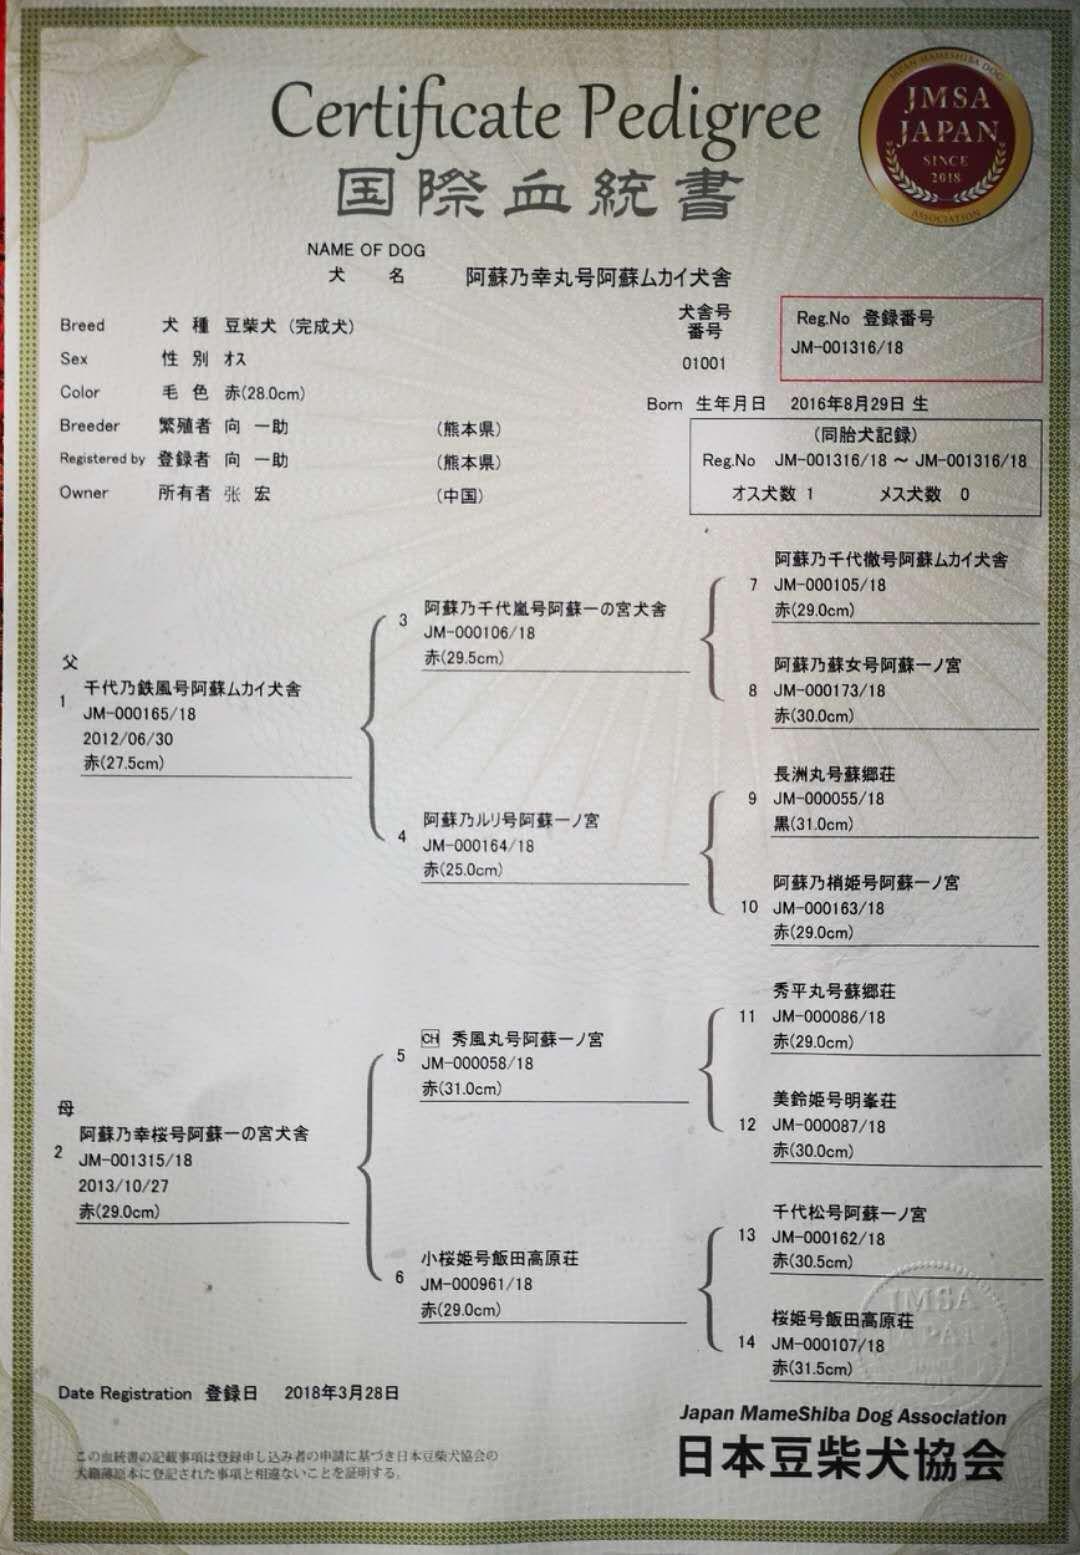 Certificate Pedigree
国際血統書
JAPAN MAMESHIBA DOG
JMSA
JAPAN
SINCE
2018
ASSOCIATION
NAME OF DOG
犬 名 阿蘇乃幸丸号阿蘇ムカイ犬舎
Breed 犬 種 豆柴犬 (完成犬)
Sex 性 別 オス
Color 毛 色 赤(28.0cm)
Breeder 繁殖者 向 一助 (熊本県)
Registered by 登録者 向 一助 (熊本県)
Owner 所有者 张 宏 (中国)
犬舎号
番号
01001
Reg.No 登録番号
JM-001316/18
Born 生年月日 2016年8月29日 生
(同胎犬記録)
Reg.No JM-001316/18 ~ JM-001316/18
オス犬数 1 メス犬数 0
父
1 千代乃鉄風号阿蘇ムカイ犬舎
JM-000165/18
2012/06/30
赤(27.5cm)
母
2 阿蘇乃幸桜号阿蘇一の宮犬舎
JM-001315/18
2013/10/27
赤(29.0cm)
3 阿蘇乃千代嵐号阿蘇一の宮犬舎
JM-000106/18
赤(29.5cm)
4 阿蘇乃ルリ号阿蘇一ノ宮
JM-000164/18
赤(25.0cm)
5 CH 秀風丸号阿蘇一ノ宮
JM-000058/18
赤(31.0cm)
6 小桜姫号飯田高原荘
JM-000961/18
赤(29.0cm)
7 阿蘇乃千代徹号阿蘇ムカイ犬舎
JM-000105/18
赤(29.0cm)
8 阿蘇乃蘇女号阿蘇一ノ宮
JM-000173/18
赤(30.0cm)
9 長洲丸号蘇郷荘
JM-000055/18
黒(31.0cm)
10 阿蘇乃梢姫号阿蘇一ノ宮
JM-000163/18
赤(29.0cm)
11 秀平丸号蘇郷荘
JM-000086/18
赤(29.0cm)
12 美鈴姫号明峯荘
JM-000087/18
赤(30.0cm)
13 千代松号阿蘇一ノ宮
JM-000162/18
赤(30.5cm)
14 桜姫号飯田高原荘
JM-000107/18
赤(31.5cm)
JMSA
Date Registration 登録日 2018年3月28日
この血統書の記載事項は登録申し込み者の申請に基づき日本豆柴犬協会の
犬籍簿原本に登記された事項と相違ないことを証明する。
Japan MameShiba Dog Association
日本豆柴犬協会